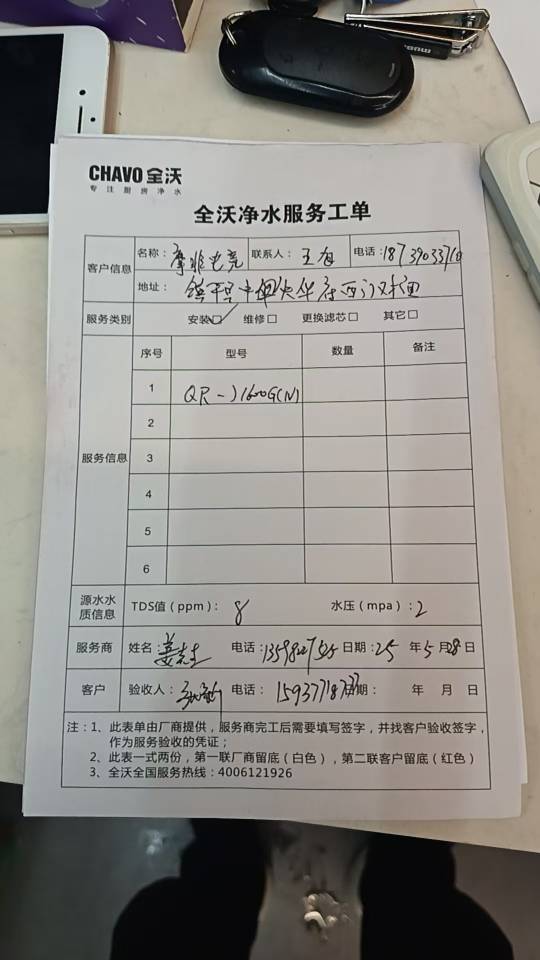 CHAVO 全沃
专注厨房净水
全沃净水服务工单
客户信息 名称：摩非电竞 联系人：王旭 电话：
地址：镇平 西门对面
服务类别 安装☑ 维修□ 更换滤芯□ 其它□
服务信息 序号 型号 数量 备注
1 QR-J1600G(N)
2
3
4
5
6
源水水质信息 TDS值（ppm）：8 水压（mpa）：2
服务商 姓名：姜先生 电话： 日期：25 年 5 月 28 日
客户 验收人： 电话：15937718727 日期： 年 月 日
注：1、此表单由厂商提供，服务商完工后需要填写签字，并找客户验收签字，
作为服务验收的凭证；
2、此表一式两份，第一联厂商留底（白色），第二联客户留底（红色）
3、全沃全国服务热线：4006121926